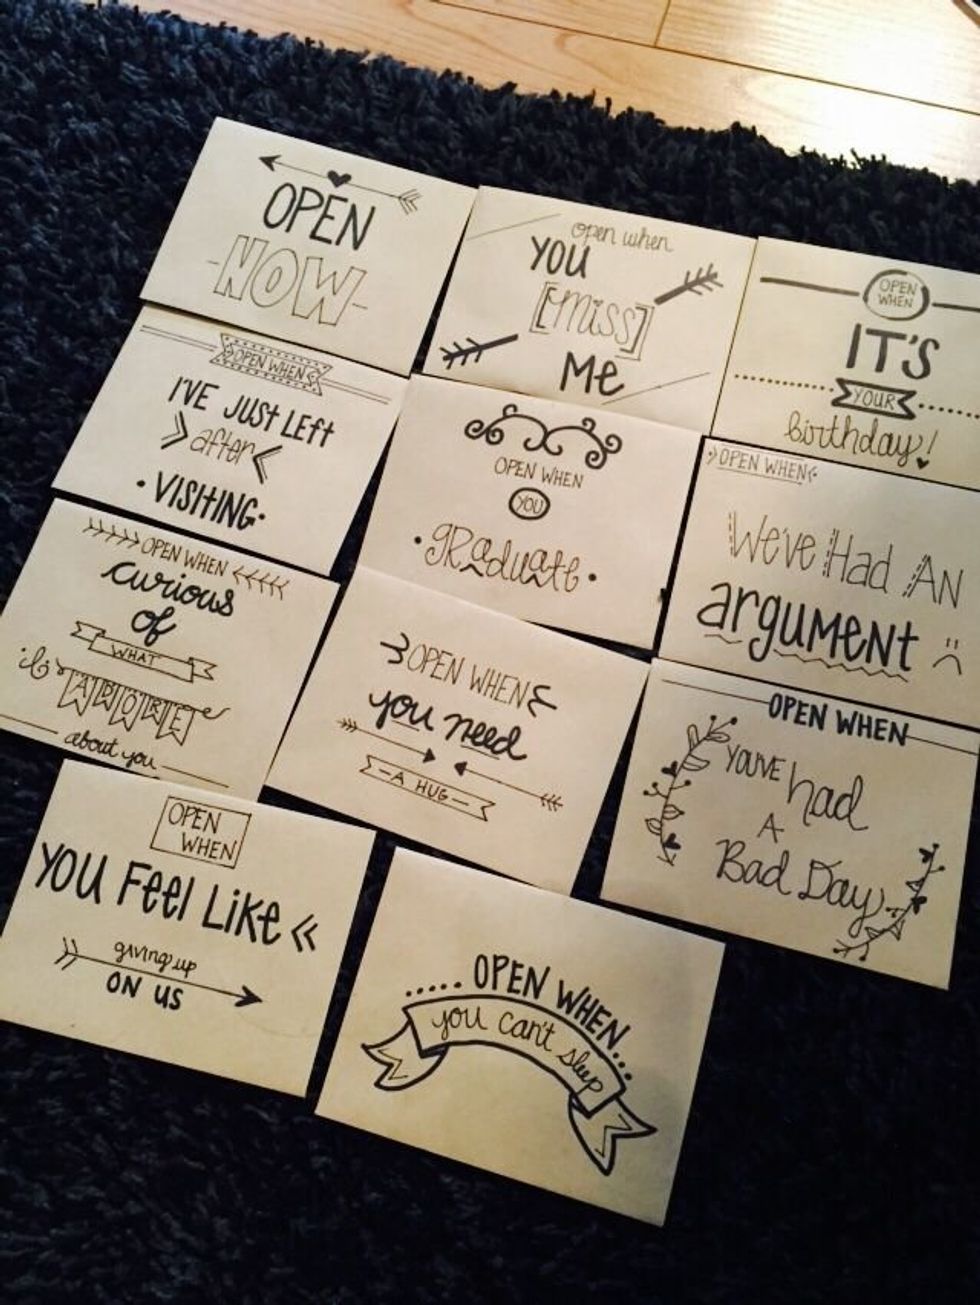 OPEN
NOW
open when
YOU
[miss]
Me
OPEN
WHEN
IT'S
YOUR
birthday!
OPEN WHEN
I'VE JUST LEFT
after
VISITING
OPEN WHEN
YOU
GRaduate
OPEN WHEN
We've Had AN
argument
OPEN WHEN
curious
of
WHAT
i
ADORE
about you
OPEN WHEN
you need
A HUG
OPEN WHEN
YOU'VE had
A
Bad Day
OPEN
WHEN
YOU Feel Like
giving up
ON US
OPEN WHEN...
you can't sleep